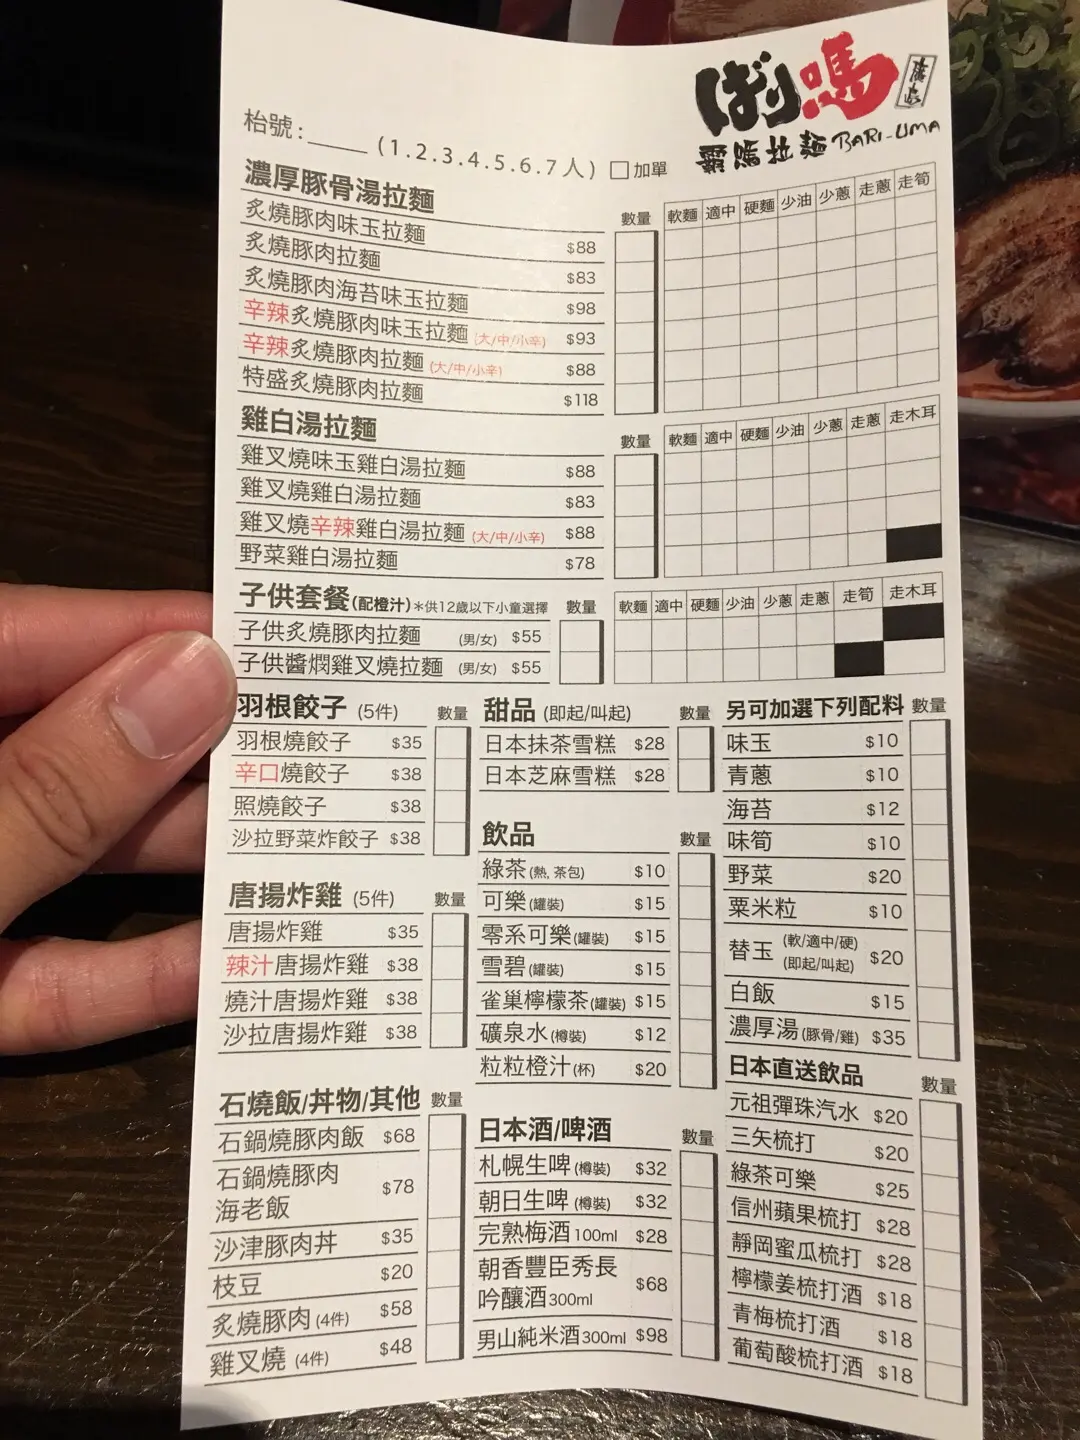 ばり嗎
霸嗎拉麵 BARI-UMA
枱號:____ (1.2.3.4.5.6.7人) □加單
濃厚豚骨湯拉麵 數量 軟麵 適中 硬麵 少油 少蔥 走蔥 走筍
炙燒豚肉味玉拉麵 $88
炙燒豚肉拉麵 $83
炙燒豚肉海苔味玉拉麵 $98
辛辣炙燒豚肉味玉拉麵 (大/中/小辛) $93
辛辣炙燒豚肉拉麵 (大/中/小辛) $88
特盛炙燒豚肉拉麵 $118
雞白湯拉麵 數量 軟麵 適中 硬麵 少油 少蔥 走蔥 走木耳
雞叉燒味玉雞白湯拉麵 $88
雞叉燒雞白湯拉麵 $83
雞叉燒辛辣雞白湯拉麵 (大/中/小辛) $88
野菜雞白湯拉麵 $78
子供套餐(配橙汁)*供12歲以下小童選擇 數量 軟麵 適中 硬麵 少油 少蔥 走蔥 走筍 走木耳
子供炙燒豚肉拉麵 (男/女) $55
子供醬燜雞叉燒拉麵 (男/女) $55
羽根餃子 (5件) 數量
羽根燒餃子 $35
辛口燒餃子 $38
照燒餃子 $38
沙拉野菜炸餃子 $38
唐揚炸雞 (5件) 數量
唐揚炸雞 $35
辣汁唐揚炸雞 $38
燒汁唐揚炸雞 $38
沙拉唐揚炸雞 $38
石燒飯/丼物/其他 數量
石鍋燒豚肉飯 $68
石鍋燒豚肉
海老飯 $78
沙津豚肉丼 $35
枝豆 $20
炙燒豚肉 (4件) $58
雞叉燒 (4件) $48
甜品 (即起/叫起) 數量
日本抹茶雪糕 $28
日本芝麻雪糕 $28
飲品 數量
綠茶(熱, 茶包) $10
可樂(罐裝) $15
零系可樂(罐裝) $15
雪碧(罐裝) $15
雀巢檸檬茶(罐裝) $15
礦泉水(樽裝) $12
粒粒橙汁(杯) $20
日本酒/啤酒 數量
札幌生啤(樽裝) $32
朝日生啤(樽裝) $32
完熟梅酒100ml $28
朝香豐臣秀長
吟釀酒300ml $68
男山純米酒300ml $98
另可加選下列配料 數量
味玉 $10
青蔥 $10
海苔 $12
味筍 $10
野菜 $20
粟米粒 $10
替玉 (軟/適中/硬) (即起/叫起) $20
白飯 $15
濃厚湯(豚骨/雞) $35
日本直送飲品 數量
元祖彈珠汽水 $20
三矢梳打 $20
綠茶可樂 $25
信州蘋果梳打 $28
靜岡蜜瓜梳打 $28
檸檬姜梳打酒 $18
青梅梳打酒 $18
葡萄酸梳打酒 $18